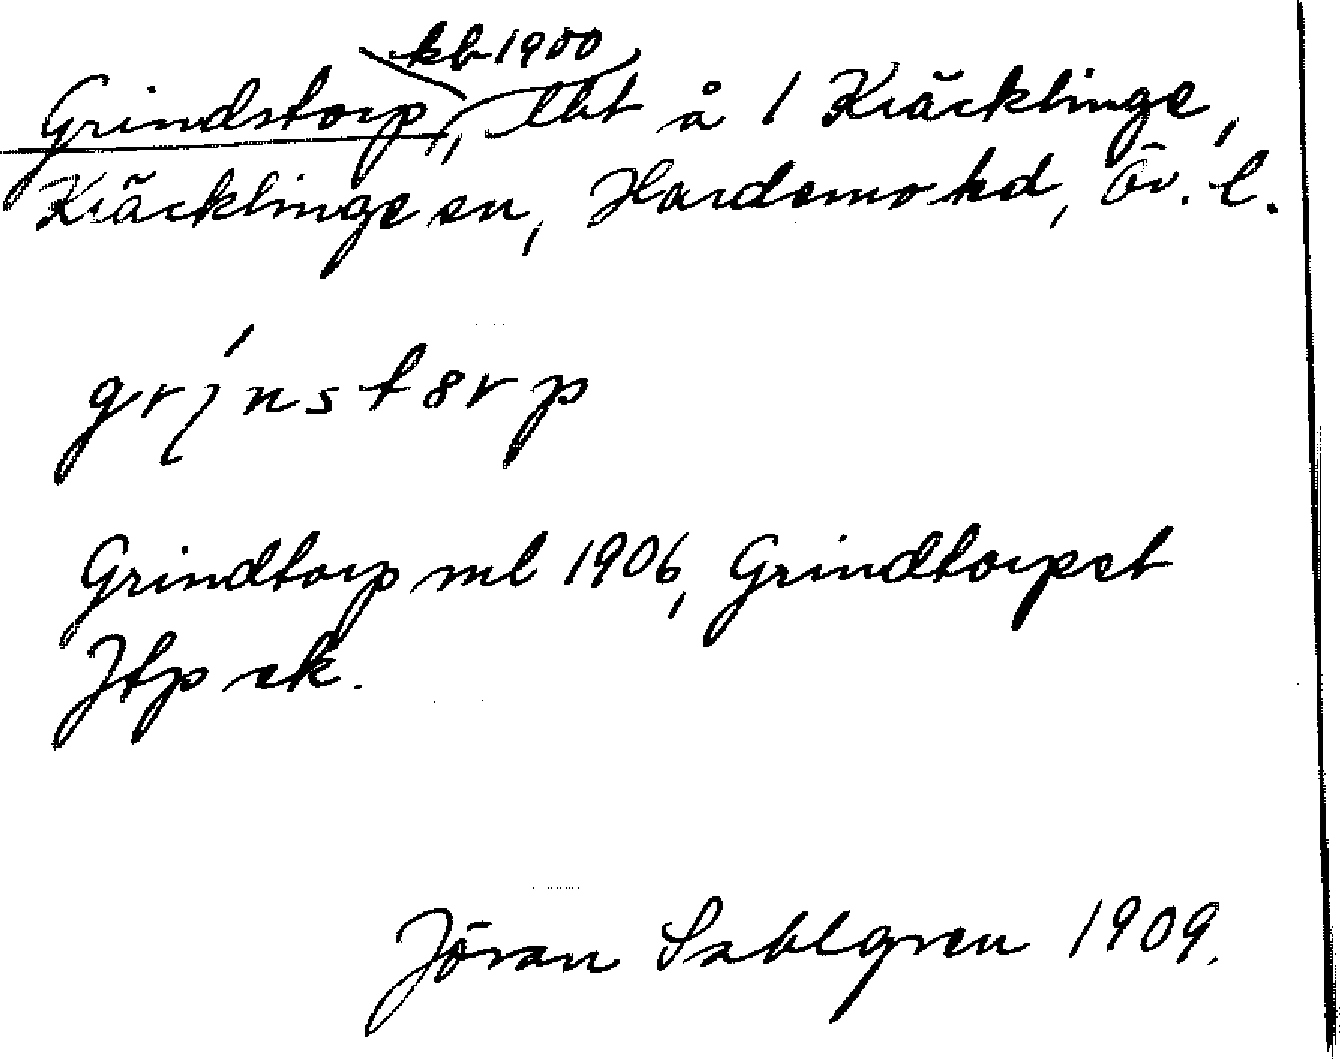 kb 1900
Grindstorp, lht å 1 Kräcklinge,
Kräcklinge sn, Hardemo hd, Ör. l.
grinstorp
Grindtorp ml 1906, Grindtorpet
Jtp ek.
Jöran Sahlgren 1909.